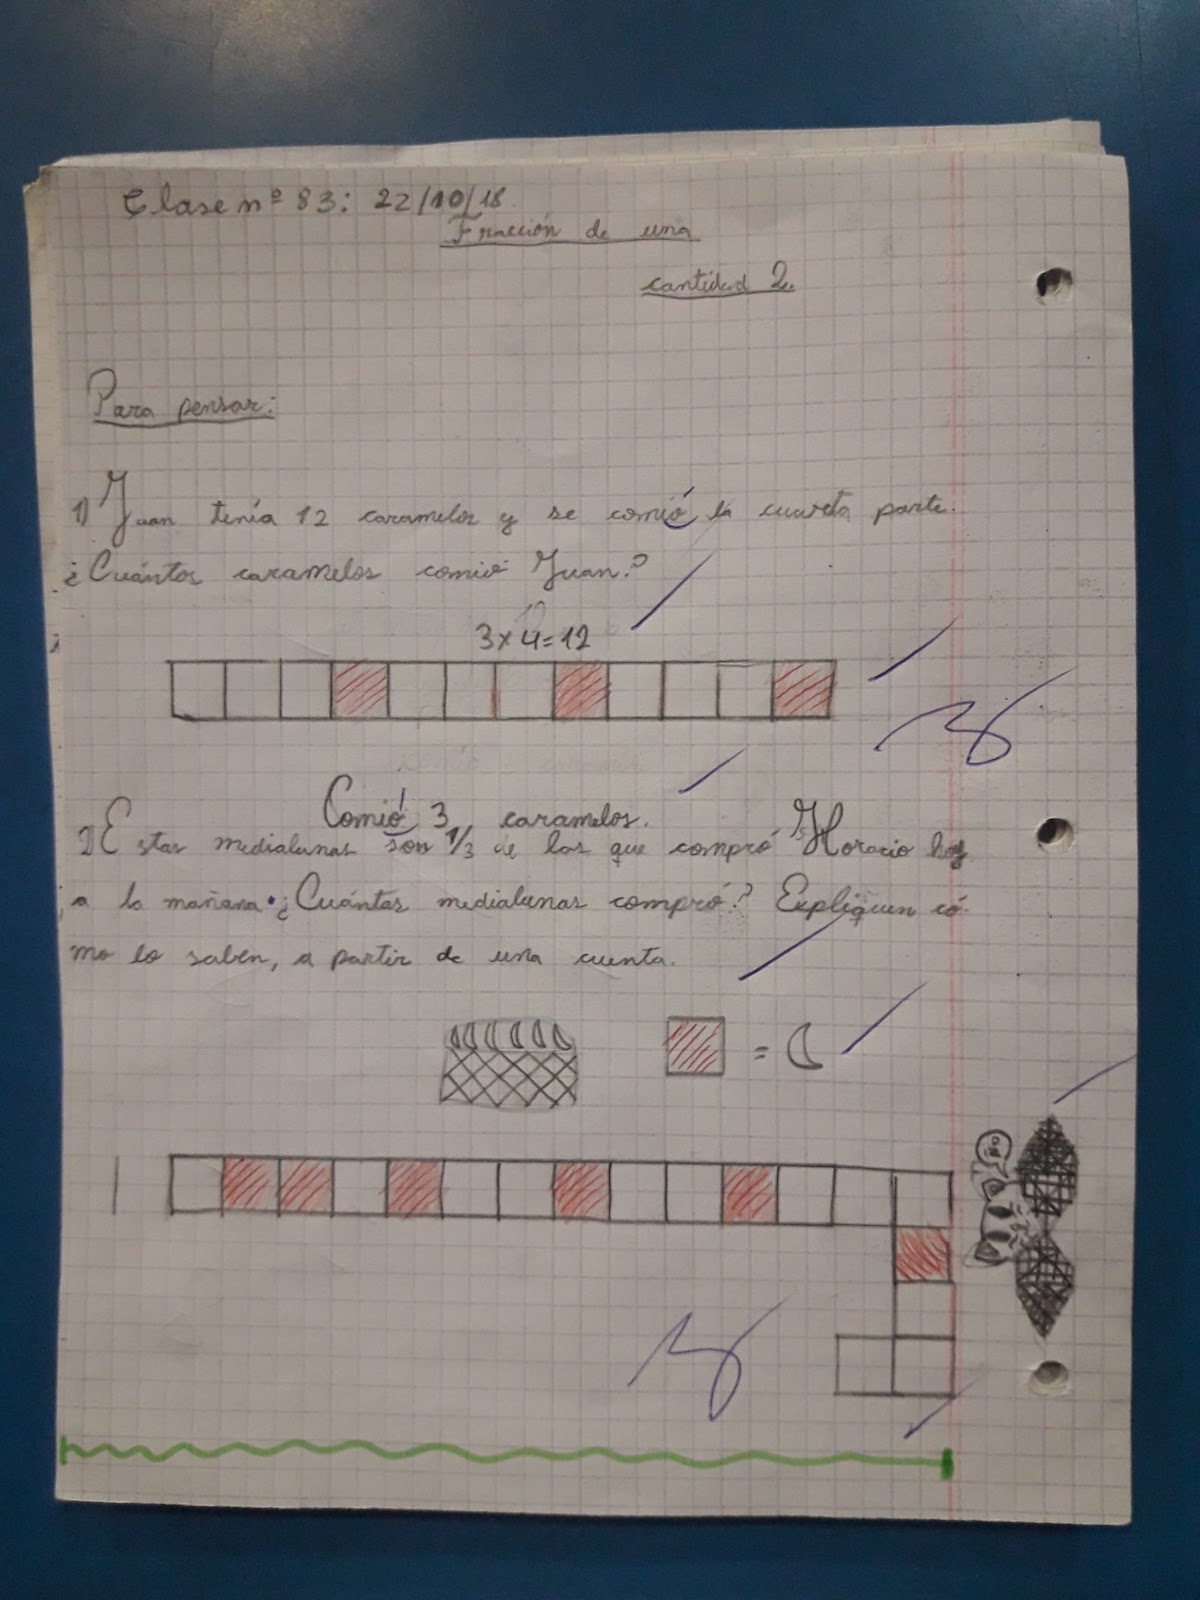 Clase nº 83: 22/10/18.
Fracción de una
cantidad 2.
Para pensar:
1) Juan tenía 12 caramelos y se comió la cuarta parte.
¿Cuántos caramelos comió Juan?
3x4=12
Comió 3 caramelos.
2) Estas medialunas son 1/3 de las que compró Horacio hoy
a la mañana. ¿Cuántas medialunas compró? Expliquen có-
mo lo saben, a partir de una cuenta.
=